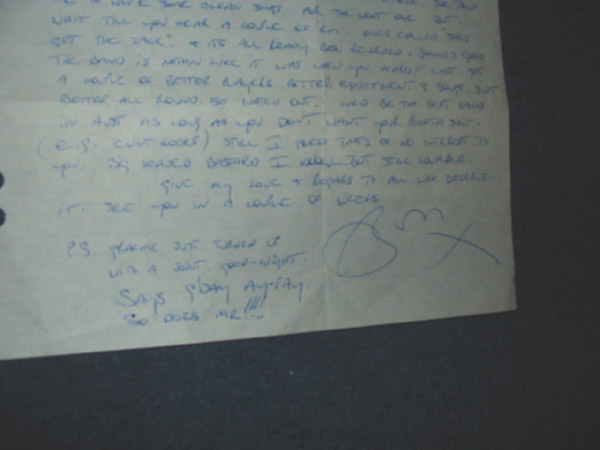 TO WRITE SOME CLEAN SONGS FOR THE NEXT ONE BUT
WAIT TILL YOU HEAR A COUPLE OF 'EM. ONES CALLED "SHES
GOT THE JACK" & ITS ALL READY BEEN RECORDED. SOUNDS GOOD
THE BAND IS NOTHIN LIKE IT WAS WHEN YOU HEARD IT LAST GOT
A COUPLE OF BETTER PLAYERS BETTER EQUIPTMENT & SONGS. JUST
BETTER ALL ROUND. SO WATCH OUT. WE'D BE THE BEST BAND
IN AUST AS LONG AS YOU DON'T WANT YOUR POOFTA SHIT.
(E.G. HOOKS) STILL I GUESS THATS OF NO INTEREST TO
YOU. BIG HEADED BASTARD I KNOW BUT STILL LOVABLE.
GIVE MY LOVE & REGARDS TO ALL WHO DESERVE
IT. SEE YOU IN A COUPLE OF WEEKS
P.S. GRAEME JUST TURNED UP
WITH A JOINT GOOD-NIGHT.
SAYS G'DAY AY-TAY.
SO DOES ME!!!!